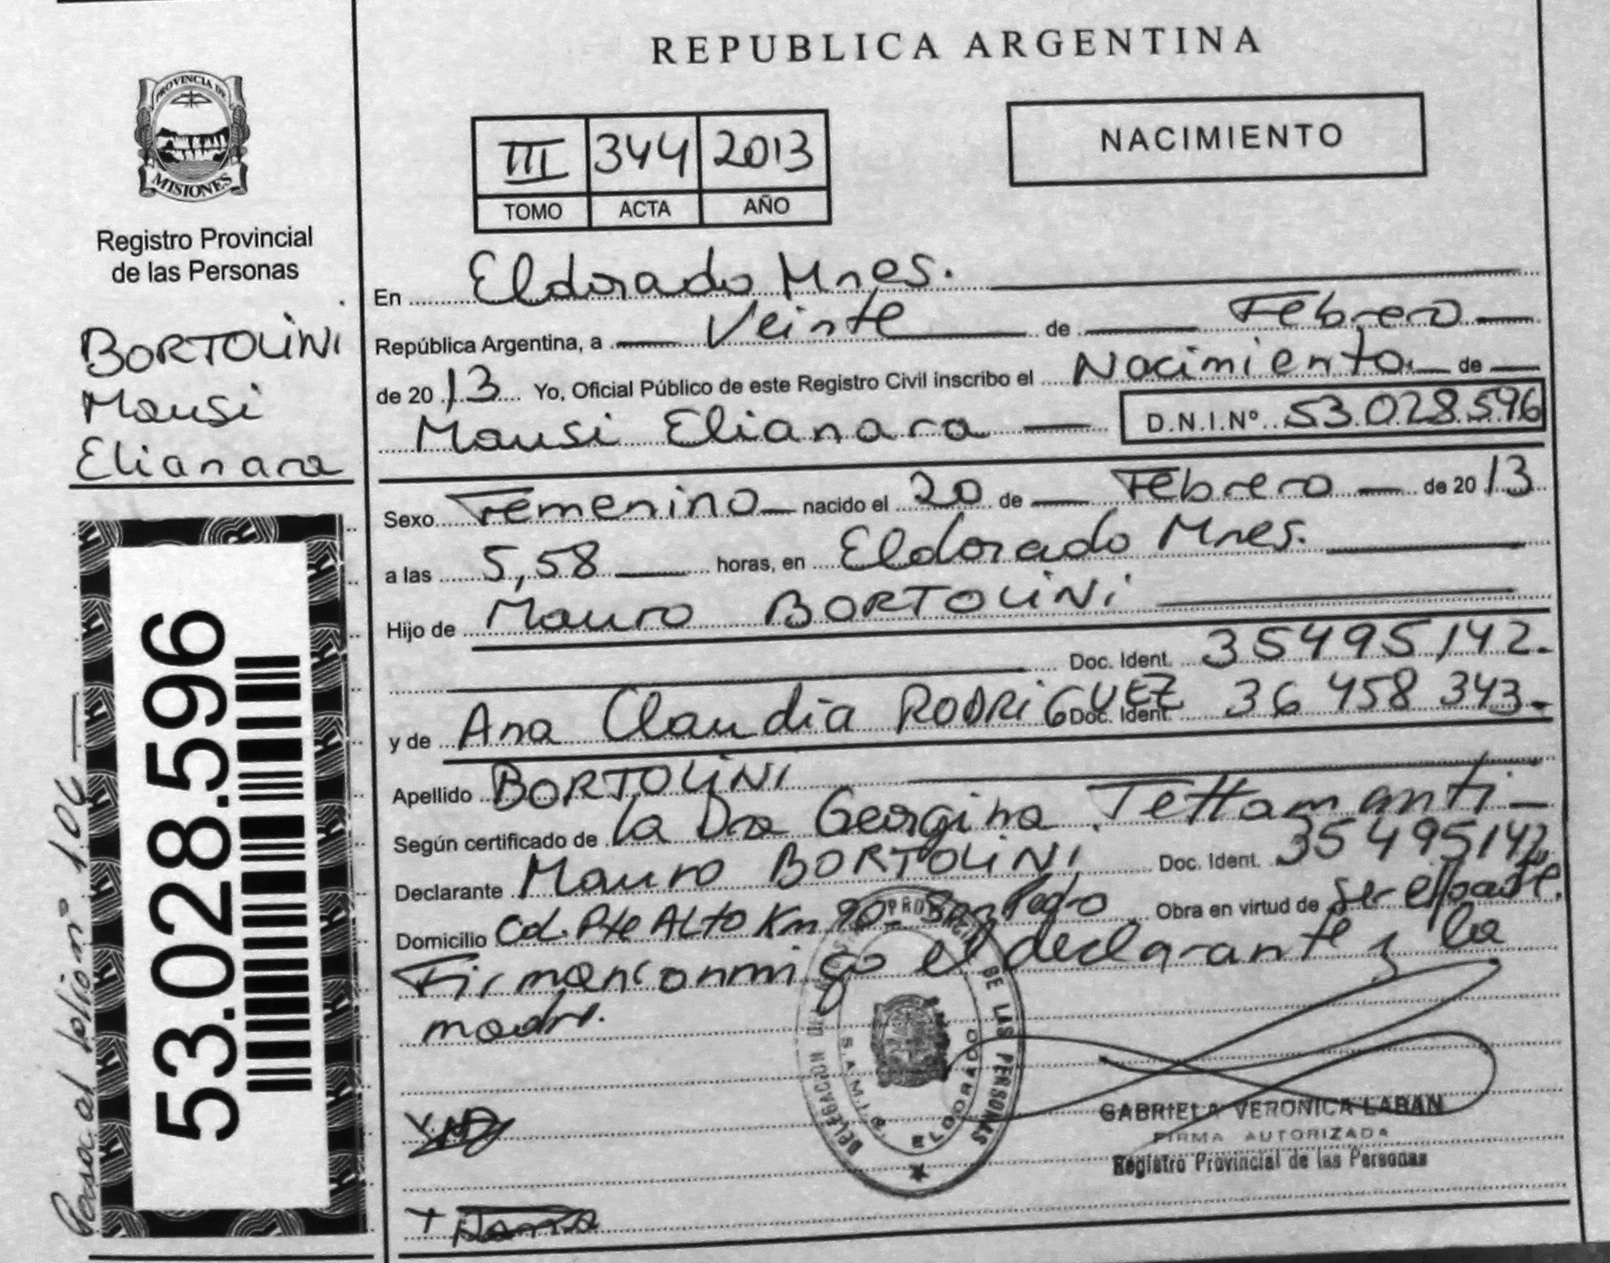 REPUBLICA ARGENTINA
PROVINCIA DE
MISIONES
Registro Provincial
de las Personas
BORTOLINI
Mausi
Elianara
53.028.596
Pasa al folio nº 106
III 344 2013
TOMO ACTA AÑO
NACIMIENTO
En Eldorado Mnes.
República Argentina, a Veinte de Febrero
de 2013 Yo, Oficial Público de este Registro Civil inscribo el Nacimiento de
Mausi Elianara D.N.I.Nº 53.028.596
Sexo Femenino nacido el 20 de Febrero de 2013
a las 5,58 horas, en Eldorado Mnes.
Hijo de Mauro BORTOLINI
Doc. Ident. 35495142.
y de Ana Claudia RODRIGUEZ Doc. Ident. 36 458 343.
Apellido BORTOLINI
Según certificado de la Dra Georgina Tettamanti
Declarante Mauro BORTOLINI Doc. Ident. 35495142
Domicilio Col. Pte ALTO Km 90 - San Pedro Obra en virtud de ser el padre.
Firman conmigo el declarante y la
madre.
DELEGACION
DE LAS PERSONAS
S.A.M.I.C.
ELDORADO
GABRIELA VERONICA LABAN
FIRMA AUTORIZADA
Registro Provincial de las Personas